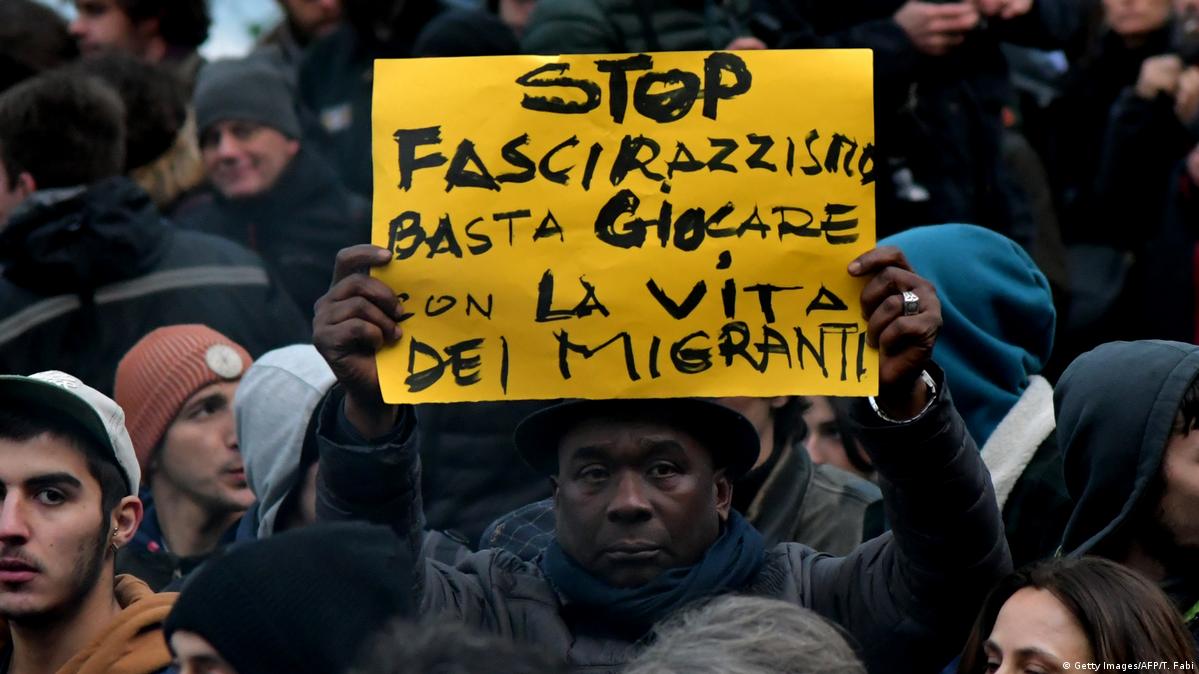 STOP
FASCIRAZZISMO
BASTA GiOCARE
CON LA ViTA
DEI MIGRANTI
© Getty Images/AFP/T. Fabi